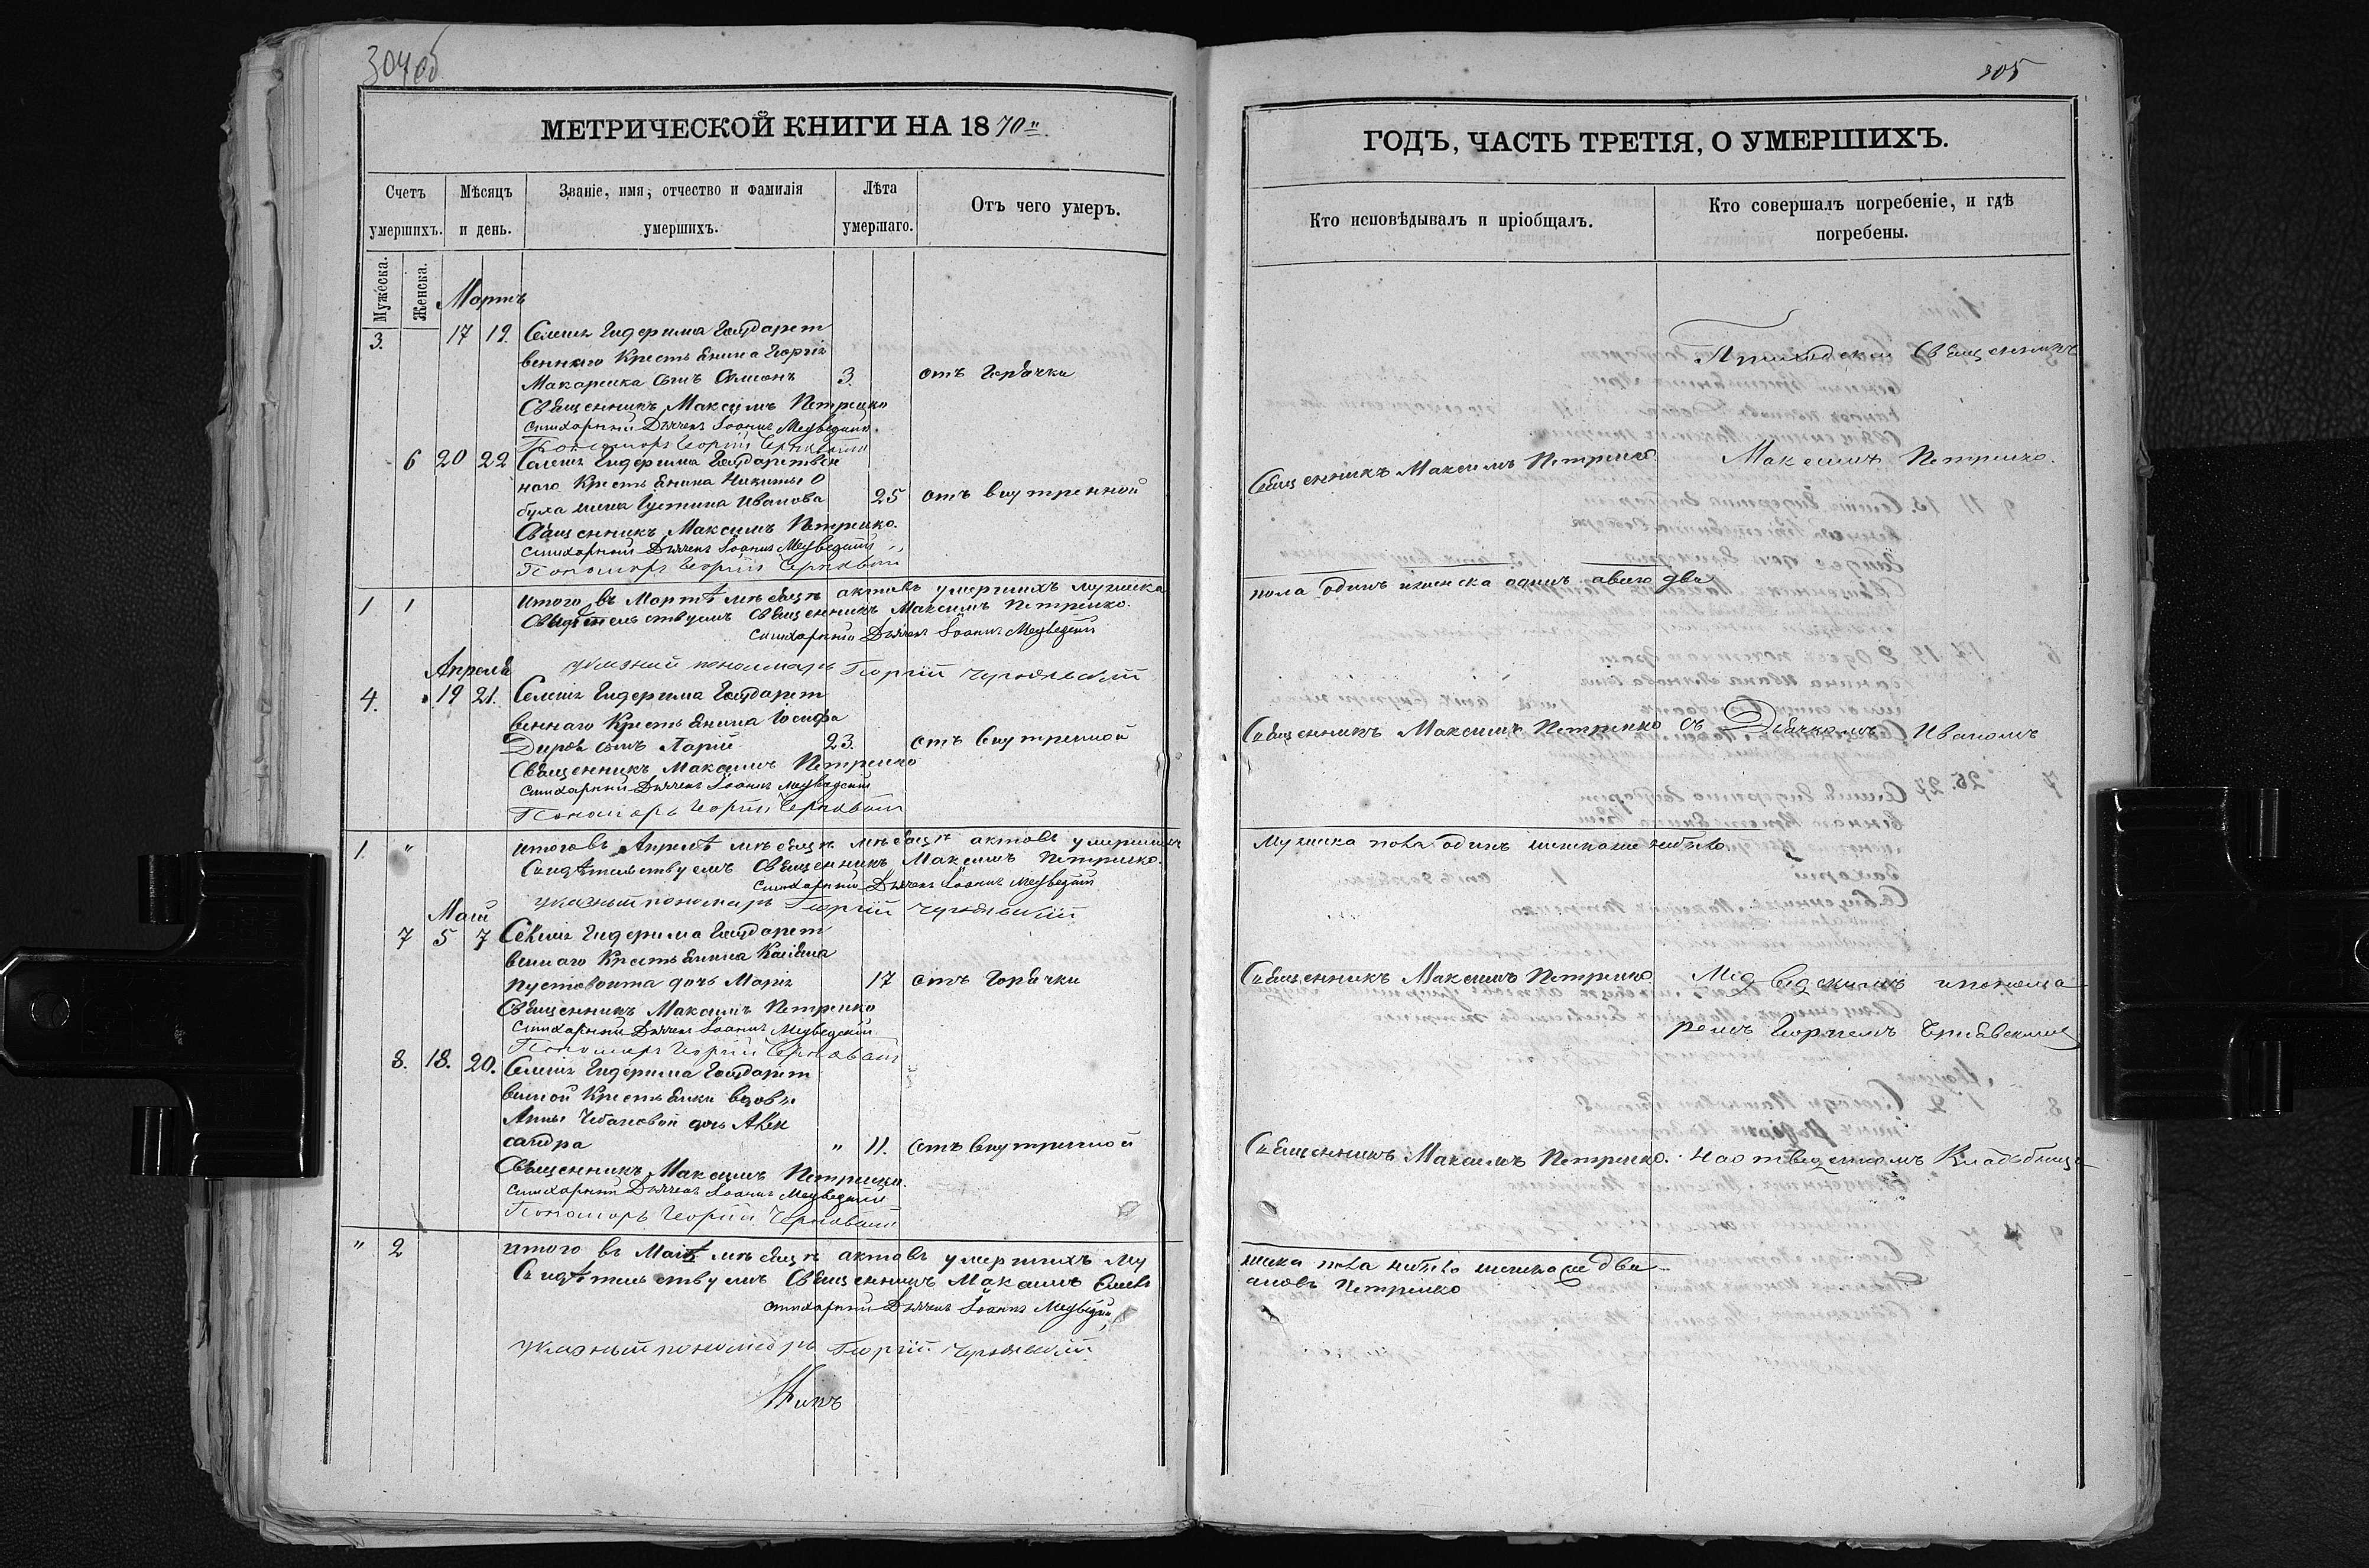 304 об
МЕТРИЧЕСКОЙ КНИГИ НА 1870
Счетъ умершихъ.
Мѣсяцъ и день.
Званіе, имя, отчество и фамилія умершихъ.
Лѣта умершаго.
Отъ чего умеръ.
Мужеска.
Женска.
Мартъ
3. 17 19. Селенія Гидерима Государст
веннаго Крестьянина Георгія
Макаренка сынъ Симеонъ 3. отъ Горячки
Священникъ Максимъ Петренко
Стихарный Дьячекъ Іоаннъ Медведскій.
Пономарь Георгій
6 20 22 Селенія Гидерима Государствен
наго Крестьянина Никиты О
буха жена Густина Иванова 25 отъ внутренной
Священникъ Максимъ Петренко.
Стихарный Дьячекъ Іоаннъ Медведскій
Пономарь Георгій
1 1 итого въ Мартѣ мѣсяцѣ актовъ умершихъ мужеска
Свидѣтельствуемъ Священникъ Максимъ Петренко.
Стихарный Дьячекъ Іоаннъ Медведскій
Указный пономарь Георгій
Апрель
4. 19 21. Селенія Гидерима Государст
веннаго Крестьянина Іосифа
сынъ Ларій 23. отъ внутренной
Священникъ Максимъ Петренко
Стихарный Дьячекъ Іоаннъ Медведскій
Пономарь Георгій
1. " итого въ Апрелѣ мѣсяцѣ мѣсяцѣ актовъ умершихъ
Свидѣтельствуемъ Священникъ Максимъ Петренко.
Стихарный Дьячекъ Іоаннъ Медведскій
Указный пономарь Георгій
Май
7 5 7 Селенія Гидерима Государст
веннаго Крестьянина
Пустовойта дочь Марія 17 отъ Горячки
Священникъ Максимъ Петренко
Стихарный Дьячекъ Іоаннъ Медведскій
Пономарь Георгій
8. 18. 20. Селенія Гидерима Государст
венной Крестьянки вдовы
Анны Чебановой дочь Алек
сандра " 11. отъ внутренной
Священникъ Максимъ Петренко.
Стихарный Дьячекъ Іоаннъ Медведскій
Пономарь Георгій
" 2 итого въ Маѣ мѣсяцѣ актовъ умершихъ му
Свидѣтельствуемъ Священникъ Максимъ Симе
Стихарный Дьячекъ Іоаннъ Медведскій
Указный пономарь Георгій
305
ГОДЪ, ЧАСТЬ ТРЕТІЯ, О УМЕРШИХЪ.
Кто исповѣдывалъ и пріобщалъ.
Кто совершалъ погребеніе, и гдѣ погребены.
Приходской Священникъ
Священникъ Максимъ Петренко. Максимъ Петренко.
пола одинъ женска одинъ авсего два
Священникъ Максимъ Петренко съ Дьячкомъ Иваномъ
мужеска пола одинъ женска не было.
Священникъ Максимъ Петренко Медведскимъ ипонома
ремъ Георгіемъ
Священникъ Максимъ Петренко. на отведенномъ Кладбище
жеска пола небыло женска же два
оновъ Петренко